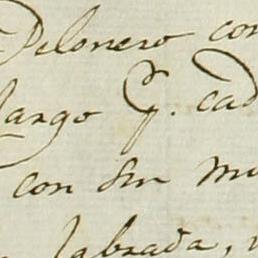 Pelonero con
largo q. cad
con sin mu
labrada,